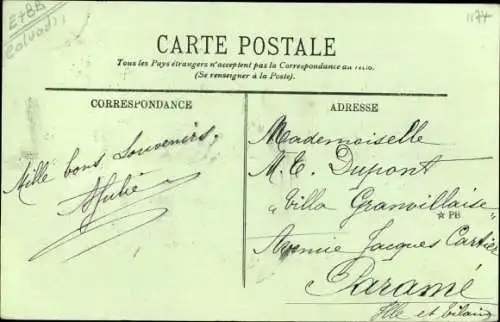 E7BB
Calvados
1174
CARTE POSTALE
Tous les Pays étrangers n'acceptent pas la Correspondance au recto.
(Se renseigner à la Poste).
CORRESPONDANCE
ADRESSE
Mille bons Souvenirs,
Julie
Mademoiselle
M. E. Dupont
Villa Granvillaise
★ PB
Avenue Jacques Cartier
Paramé
Ille et Vilaine